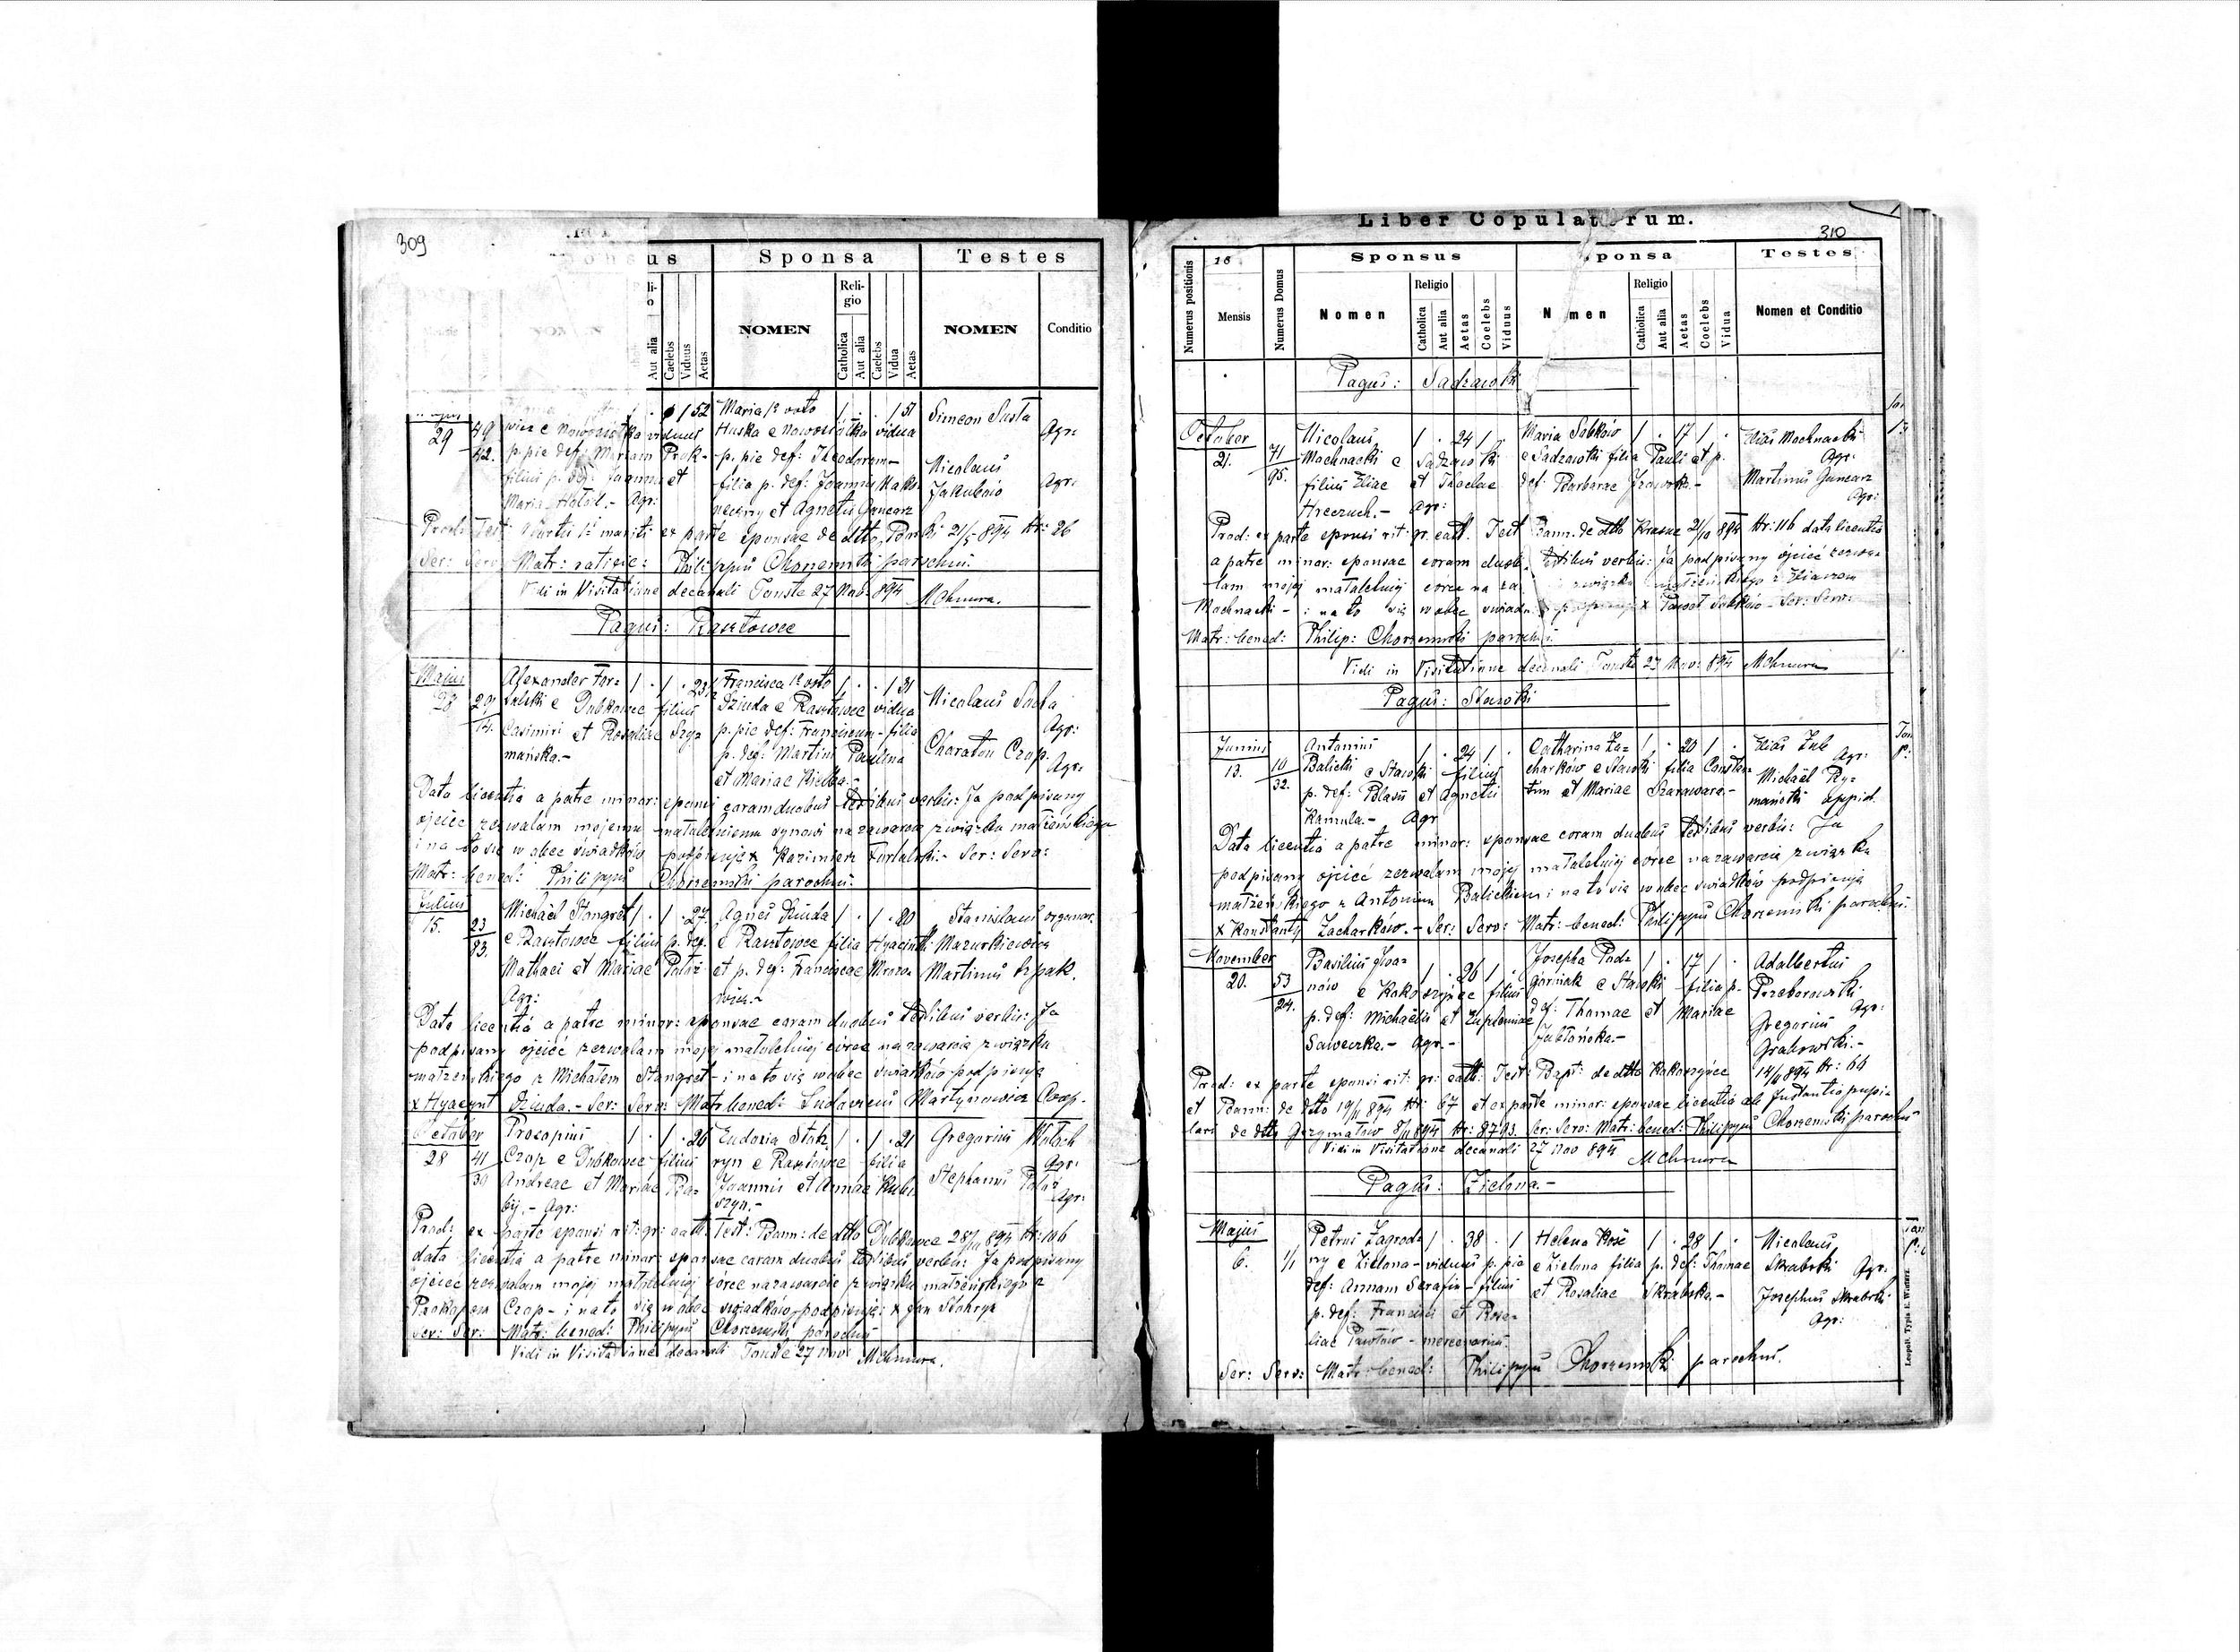 309
Sponsa
Testes
Religio
NOMEN
NOMEN
Conditio
Aut alia
Caelebs
Viduus
Aetas
Catholica
Aut alia
Caelebs
Vidua
Aetas
29 49/42.
wicz e Nowosiółka viduus
p. pie def: Mariam Prok-
filius p. def: Joannis et
Maria Hotol.- Agr:
1 52
Maria 1º voto
Huska e Nowosiółka vidua
p. pie def: Theodorum-
filia p. def: Joannis Mako-
neczny et Agnetis Guncarz
1 . . 1 51
Simeon Susta
Agr:
Nicolaus
Jakubów
Agr:
Prod: Test: mortis 1i mariti ex parte sponsae de dtto Borki 21/5 894 Nr: 26
Ser: Serv: Matr: ratific: Philippus Chorzemski parochus.
Vidi in Visitatione decanali Touste 27 Nov 894 MChmura.
Pagus: Rasztowce
Majus
28 29/14.
Alexander For-
talski e Dubkowce filius
Casimiri et Rosaliae Szy-
mańska.-
1 . 1 . 23½
Francisca 1º voto
Dziuda e Rasztowce vidua
p. pie def: Franciscum - filia
p. def: Martini Paulina
et Mariae Kielba.-
1 . . 1 31
Nicolaus Soba
Agr:
Charaton Czop
Agr:
Data licentia a patre minor: sponsi coram duobus testibus verbis: Ja podpisany
ojciec zezwalam mojemu małoletniemu synowi na zawarcie związku małżeńskiego
i na to się wobec świadków podpisuję x Kazimierz Fortalski.- Ser: Serv:
Matr: bened: Philippus Chorzemski parochus.
Julius
15. 23/83.
Michael Stangret
e Rasztowce filius p. def.
Mathaei et Mariae Potoż
Agr:
1 . 1 . 27.
Agnes Dziuda
e Rasztowce filia Hyacinthi
et p. def: Franciscae Mrozo-
wicz.-
1 . 1 . 20
Stanislaus organar.
Mazurkiewicz
Martinus Szpak.
Data licentia a patre minor: sponsae coram duobus testibus verbis: Ja
podpisany ojciec zezwalam mojej małoletniej córce na zawarcie związku
małżeńskiego z Michałem Stangret - i na to się wobec świadków podpisuję
x Hyacynt Dziuda.- Ser: Serv: Matr: bened: Ludovicus Martynowicz Coop.
October
28 41/30
Procopius
Czop e Dubkowce filius
Andreae et Mariae Ba-
bij.- Agr:
1 . 1 . 26
Eudoxia Stoh-
ryn e Rasztowce filia
Joannis et Annae Kuba-
szyn.-
1 . 1 . 21
Gregorius Małach
Agr:
Stephanus Potoż
Agr:
Prod: ex parte sponsi rit: gr: cath: Test: Bann: de dtto Dubkowce 28/10 894 Nr: 106
data licentia a patre minor: sponsae coram duobus testibus verbis: Ja podpisany
ojciec zezwalam mojej małoletniej córce na zawarcie związku małżeńskiego z
Prokopem Czop - i na to się wobec świadków podpisuję: x Jan Stohryn
Ser: Ser: Matr: bened: Philippus Chorzemski parochus
Vidi in Visitatione decanali Touste 27 Nov: MChmura.
Liber Copulatorum.
310
Numerus positionis
18
Mensis
Numerus Domus
Sponsus
Nomen
Religio
Catholica
Aut alia
Aetas
Coelebs
Viduus
Sponsa
Nomen
Religio
Catholica
Aut alia
Aetas
Coelebs
Vidua
Testes
Nomen et Conditio
Pagus: Sadzawki
October
21. 71/95.
Nicolaus
Mochnacki e Sadzawki
filius Eliae et Theclae
Hreczuch.- Agr:
1 . 24 1 .
Maria Sobków
e Sadzawki filia Pauli et p.
def: Barbarae
1 . 17 1 .
Elias Mochnacki
Agr:
Martinus Guncarz
Agr:
Prod: ex parte sponsi rit: gr: cath. Test Bann: de dtto Krasne 21/10 894 Nr: 116 data licentia
a patre minor: sponsae coram duob. testibus verbis: Ja podpisany ojciec zezwa-
lam mojej małoletniej córce na związku małżeńskiego z Eliaszem
Mochnacki - i na to się wobec świadków podpisuję x Paweł Sobków - Ser: Serv:
Matr: bened: Philip: Chorzemski parochus.
Vidi in Visitatione decanali Touste 27 Nov: 894 MChmura
Pagus: Stawki
Junius
13. 10/32.
Antonius
Balicki e Stawki filius
p. def: Blasii et Agnetis
Kamula.- Agr
1 . 24 1 .
Catharina Za-
charków e Stawki filia Constan-
tini et Mariae Szarawara.-
1 . 20 1 .
Elias Zub
Agr:
Michael Ry-
mański oppid.
Data licentia a patre minor: sponsae coram duobus testibus verbis: Ja
podpisany ojciec zezwalam mojej małoletniej córce na zawarcie związku
małżeńskiego z Antonim Balickim i na to się wobec świadków podpisuję
x Konstanty Zacharków.- Ser: Serv: Matr: bened: Philippus Chorzemski parochus.
November
20. 53/24.
Basilius Iwa-
nów e Kokoszyńce filius
p. def: Michaelis et Euphemiae
Saweczka.- Agr.-
1 . 26 1 .
Josepha Pod-
górniak e Stawki filia p.
def: Thomae et Mariae
Jabłońska.-
1 . 17 1 .
Adalbertus
Przeborowski
Agr:
Gregorius
Grabowski.-
Prod: ex parte sponsi rit: gr: cath: Test: Bapt: de dtto Kokoszyńce 14/11 894 Nr: 66
et Bann: de dtto 19/11 894 Nr: 67 et ex parte minor: sponsae licentia ab Instantia pupi-
lari de dtto Grzymałów 8/11 894 Nr: 8793. Ser: Serv: Matr: bened: Philippus Chorzemski parochus
Vidi in Visitatione decanali 27 Nov 894 MChmura
Pagus: Zielona.-
Majus
6. 1/1
Petrus Zagrod-
ny e Zielona - viduus p. pie
def: Annam Serafin - filius
p. def: Francisci et Rosa-
liae Pawłów - mercenarius.
1 . 38 . 1
Helena Kość
e Zielona filia p. def: Thomae
et Rosaliae Skrabska.-
1 . 28 1 .
Nicolaus
Skrabski Agr:
Josephus Skrabski
Agr:
Ser: Serv: Matr: bened: Philippus Chorzemski parochus.
Leopoli. Typis E. Winiarz.